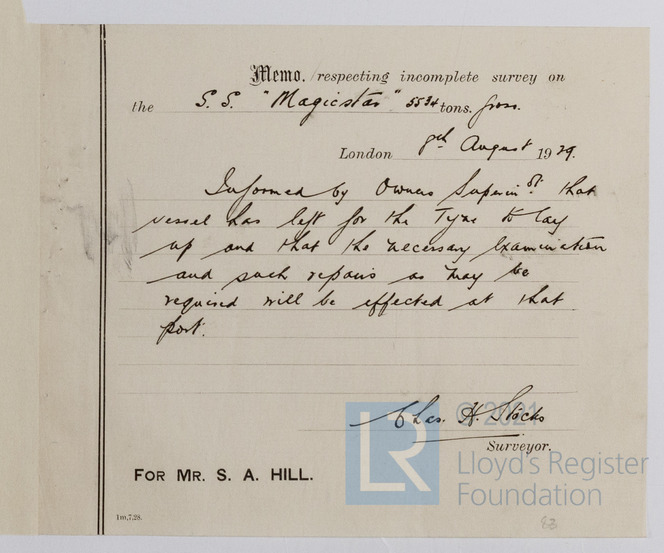 Memo. respecting incomplete survey on
the S.S. "Magicstar" 5534 tons. gross.
London 8th August 1929.
Informed by Owners Superindt. that
vessel has left for the Tyne to lay
up and that the necessary examination
and such repairs as may be
required will be effected at that
port.
Chas. H. Stocks
Surveyor.
FOR MR. S. A. HILL.
1m,7.28.
© 2021
LR
Lloyd's Register
Foundation